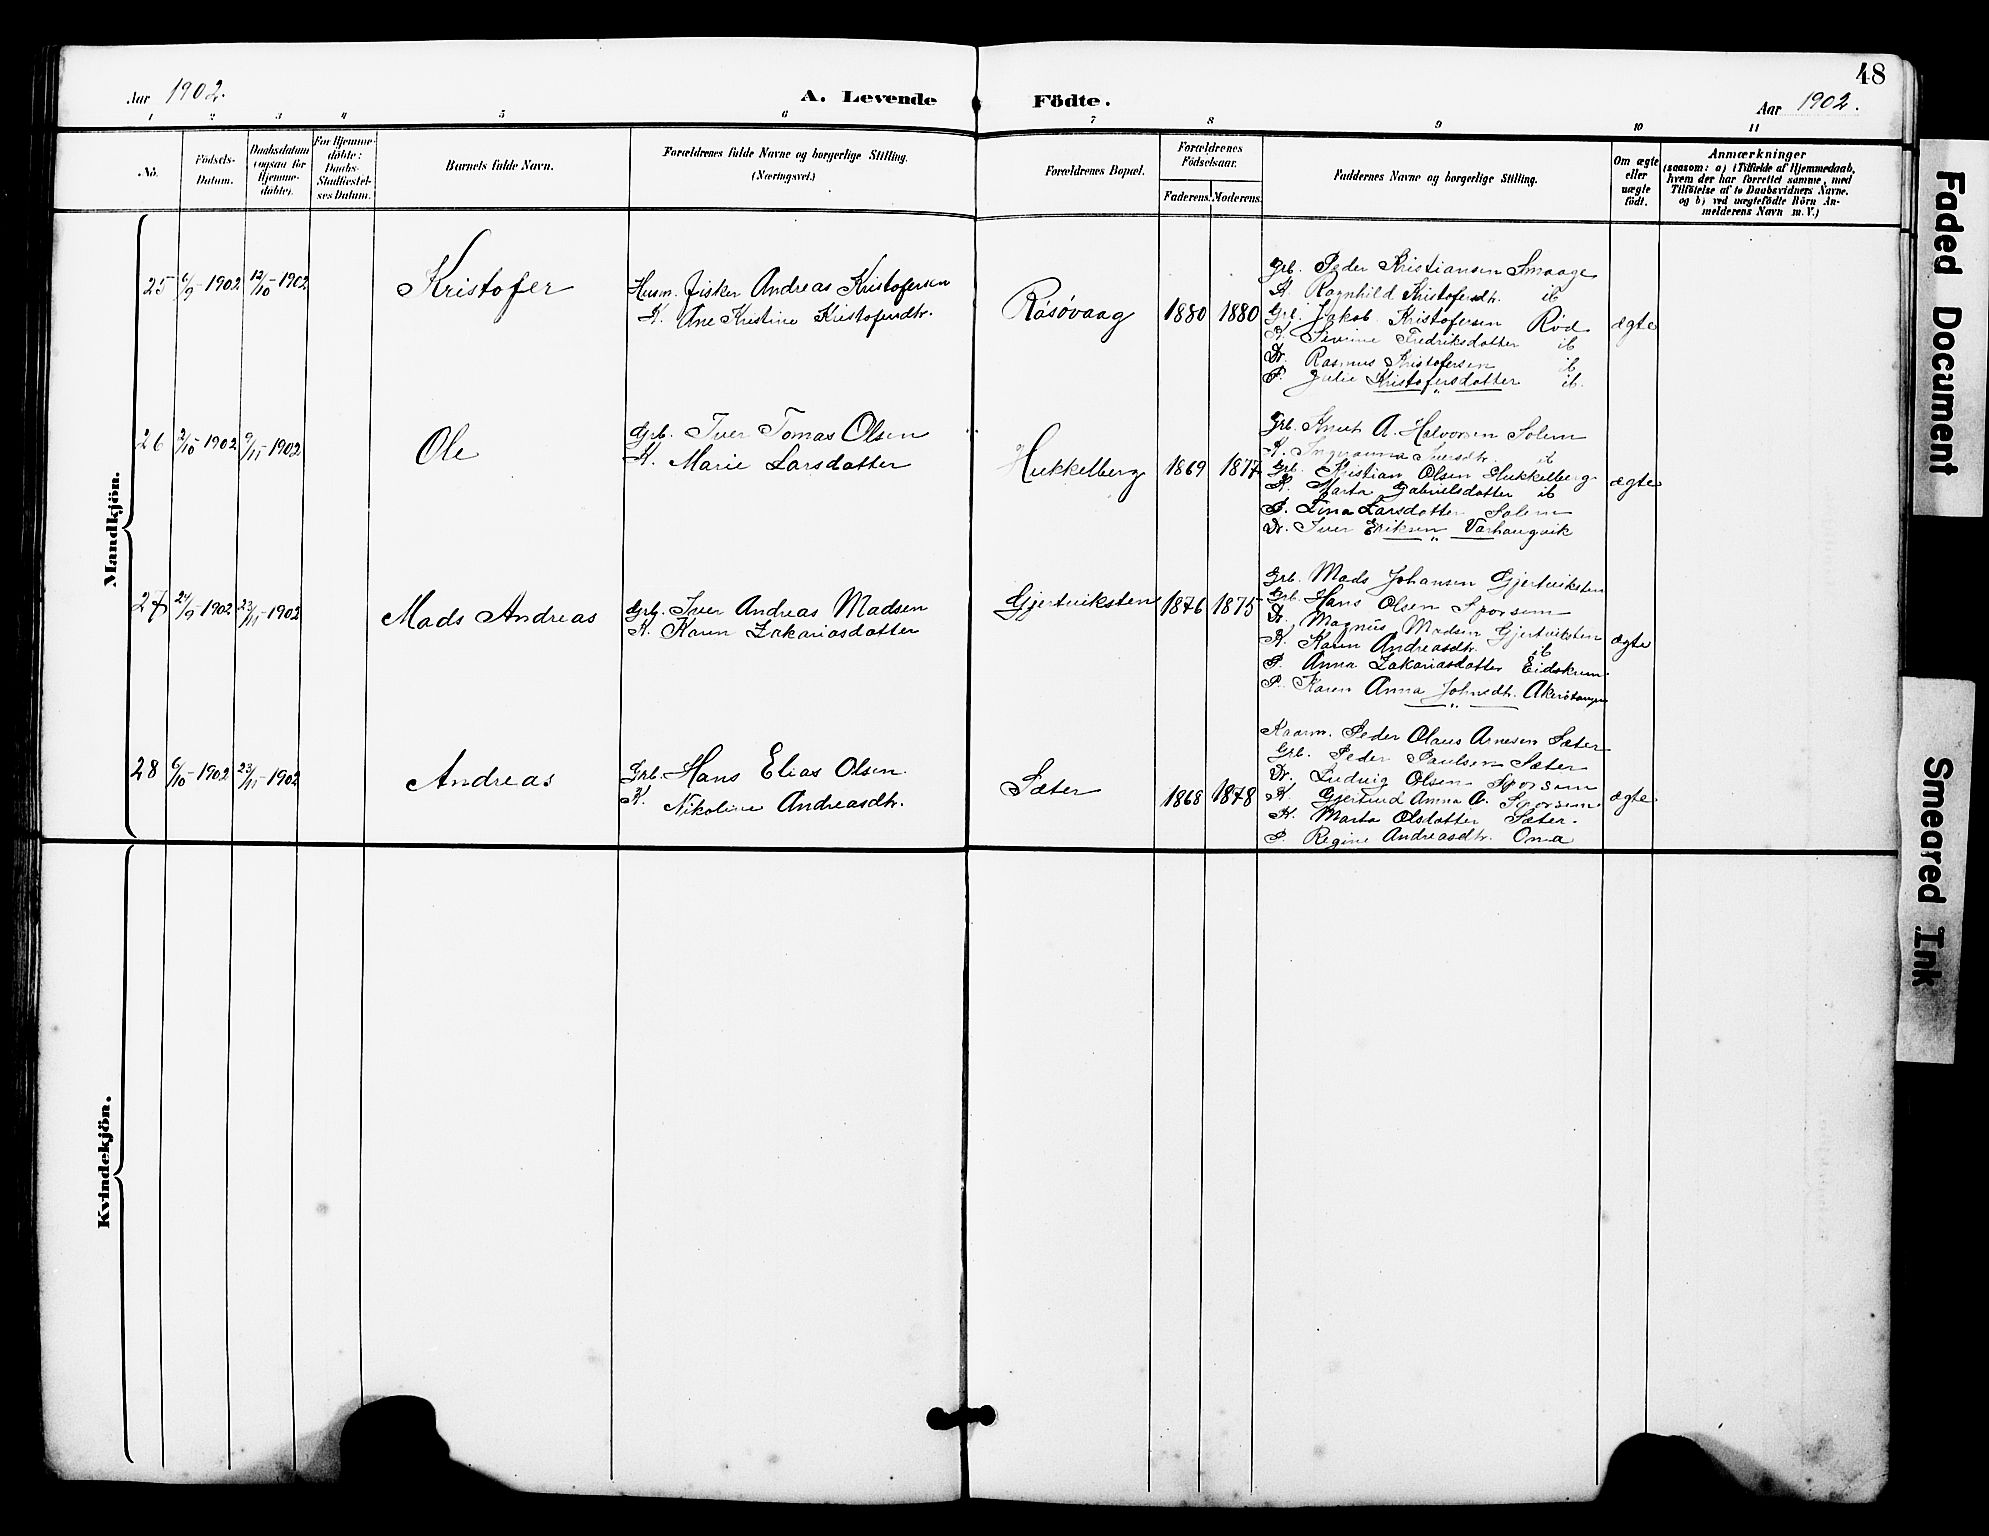 48
Aar 1902.
A. Levende Födte.
Aar 1902.
1 2 3 4 5 6 7 8 9 10 11
No.
Födsels-Datum.
Daabsdatum (ogsaa for Hjemme-döbte).
For Hjemme-döbte: Daabs-Stadfæstel-ses Datum.
Barnets fulde Navn.
Forældrenes fulde Navne og borgerlige Stilling.
(Næringsvei.)
Forældrenes Bopæl.
Forældrenes Födselsaar.
Faderens. Moderens.
Faddernes Navne og borgerlige Stilling.
Om ægte eller uægte födt.
Anmærkninger
(saasom: a) i Tilfælde af Hjemmedaab,
hvem der har forrettet samme, med
Tilföielse af to Daabsvidners Navne.
og b) ved uægtefödte Börn An-
melderens Navn m. V.)
Mandkjön.
25 6/9 1902 12/10 1902 Kristofer
Husm. fisker Andreas Kristofersen
K. Ane Kristine Kristofersdtr.
Rösövaag 1880 1880
Grb. Peder Kristiansen Smaage
K. Ragnhild Kristofersdtr. ib
Grb. Jakob Kristofersen Röd
K. Sivrine Fredriksdatter ib
Dr. Rasmus Kristofersen ib
P. Julie Kristofersdatter ib.
ægte
26 2/10 1902 9/11 1902 Ole
Grb. Iver Tomas Olsen
K. Marie Larsdatter
Hukkelberg 1869 1877
Grb. Knut A. Halvorsen Solem
K. Ingeranna Iversdtr. ib
Grb. Kristian Olsen Hukkelberg
K. Marta Gabrielsdatter ib
P. Lina Larsdatter Solem
Dr. Iver Eriksen Varhaugvik
ægte
27 24/9 1902 23/11 1902 Mads Andreas
Grb. Iver Andreas Madsen
K. Karen Zakariasdatter
Gjertviksten 1876 1875
Grb. Mads Johansen Gjertviksten
Grb. Hans Olsen Sporsem
Dr. Magnus Madsen Gjertviksten
K. Karen Andreasdtr. ib
P. Anna Zakariasdatter Eidskrem
P. Karen Anna Johnsdtr.
ægte
28 6/10 1902 23/11 1902 Andreas
Grb. Hans Elias Olsen
K. Nikoline Andreasdtr.
Sæter 1868 1878
Kaarm. Peder Olaus Arnesen Sæter
Grb. Peder Paulsen Sæter
Dr. Ludvig Olsen Sporsem
K. Gjertrud Anna O. Sporsem
K. Marta Olsdatter Sæter.
P. Regine Andreasdtr. Ona
ægte
Kvindekjön.
Faded Document
Smeared Ink